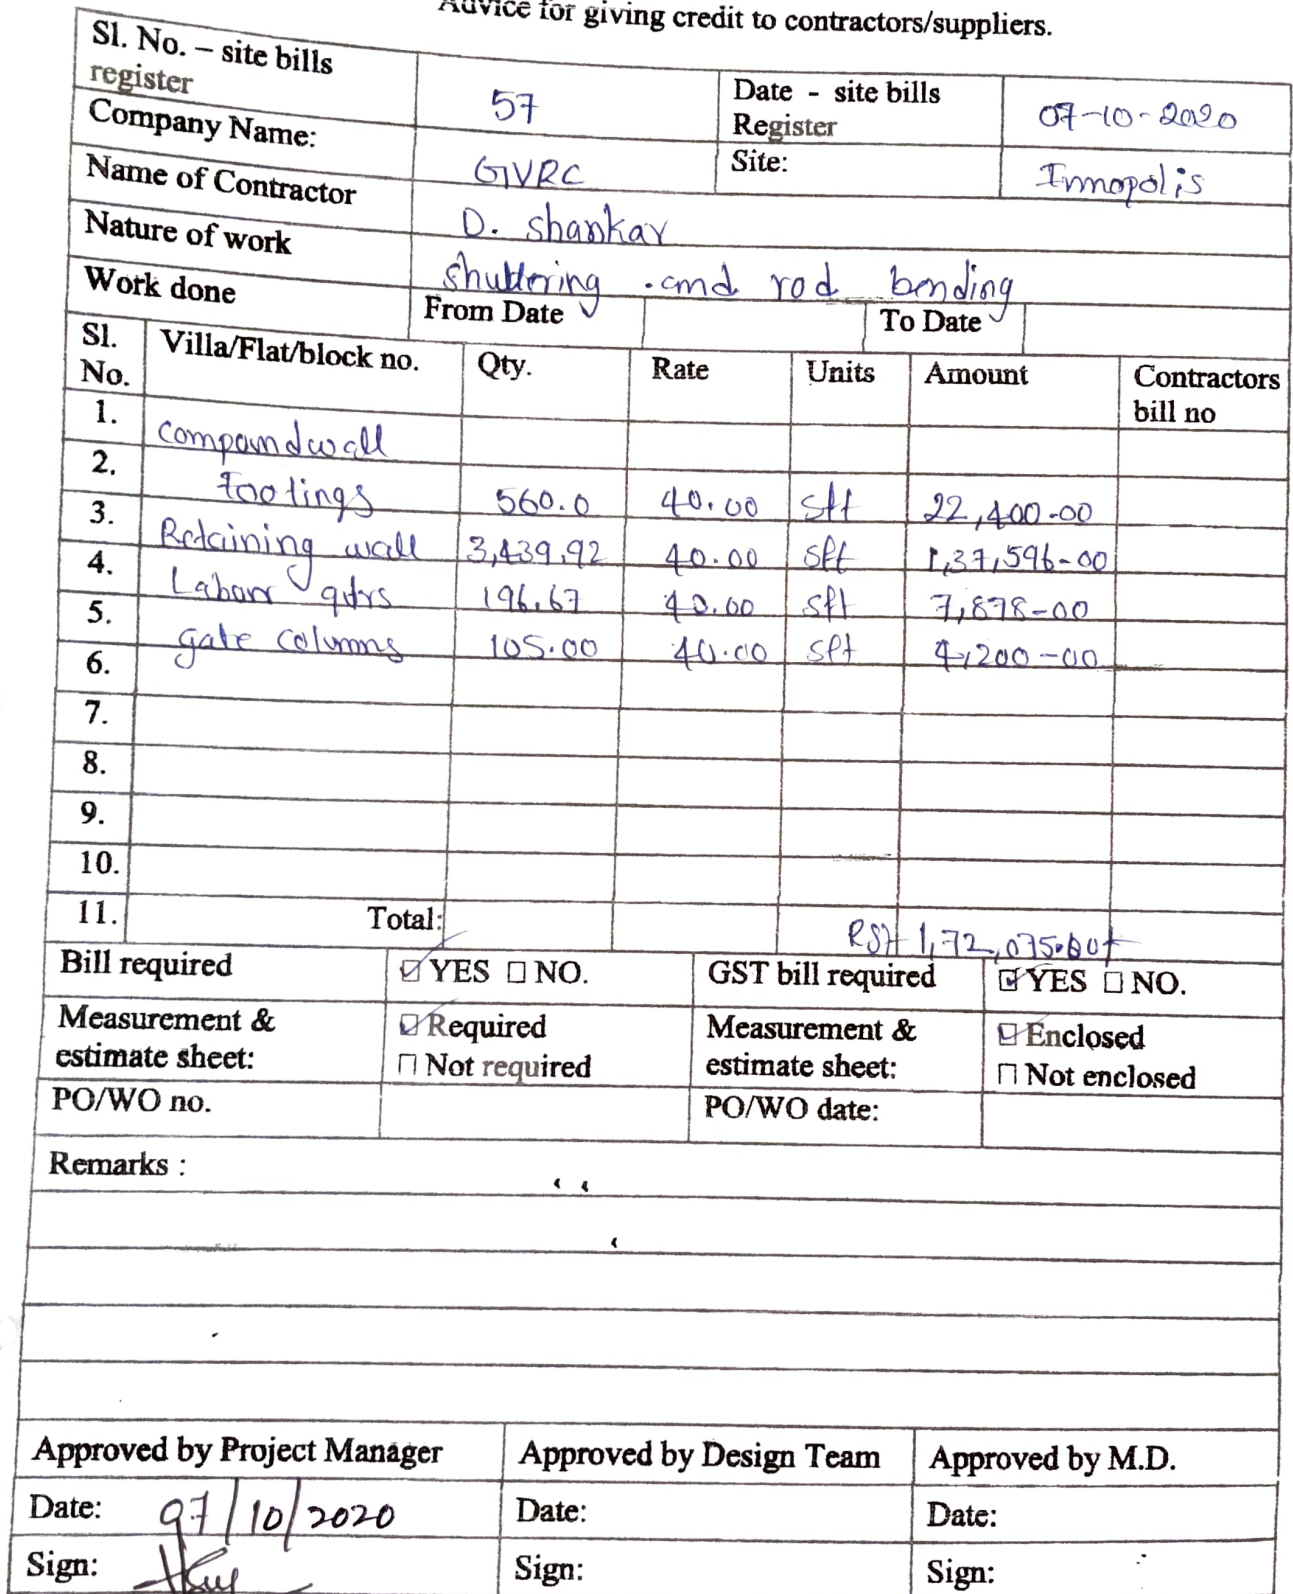 Advice for giving credit to contractors/suppliers.
Sl. No. – site bills register 57 Date - site bills Register 07-10-2020
Company Name: GVRC Site: Innopolis
Name of Contractor D. Shankar
Nature of work Shuttering and rod bending
Work done From Date To Date
Sl. No. Villa/Flat/block no. Qty. Rate Units Amount Contractors bill no
1. Compoundwall
2. footings 560.0 40.00 Sft 22,400-00
3. Retaining wall 3,439.92 40.00 Sft 1,37,596-00
4. Labour qutrs 196.67 40.00 Sft 7,878-00
5. gate columns 105.00 40.00 Sft 4,200-00
6.
7.
8.
9.
10.
11. Total: 1,72,075.00
Bill required ☑ YES ☐ NO. GST bill required ☑ YES ☐ NO.
Measurement & estimate sheet: ☑ Required ☐ Not required Measurement & estimate sheet: ☑ Enclosed ☐ Not enclosed
PO/WO no. PO/WO date:
Remarks :
Approved by Project Manager Approved by Design Team Approved by M.D.
Date: 07/10/2020 Date: Date:
Sign: Sign: Sign: